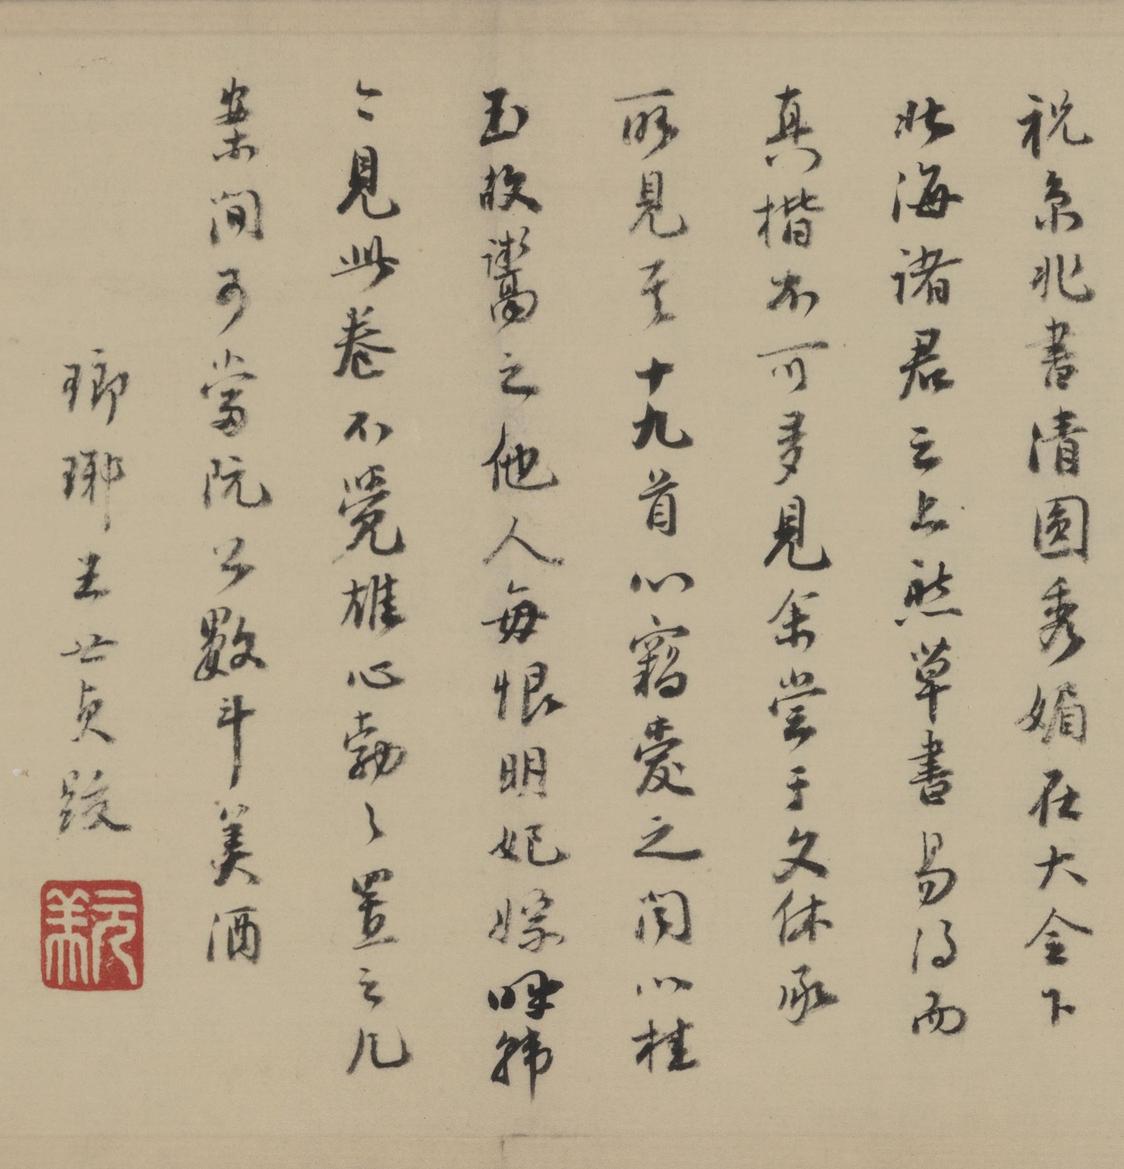 祝京兆書清圓秀媚在大令下
北海諸君之上然草書易得而
真楷不可多見余嘗于文休承
所見其十九首心竊愛之聞以桂
玉故鬻之他人每恨明妃嫁呼韓
今見此卷不覺雄心勃〻置之几
案間可當阮公數斗美酒
瑯琊王世貞跋
元美